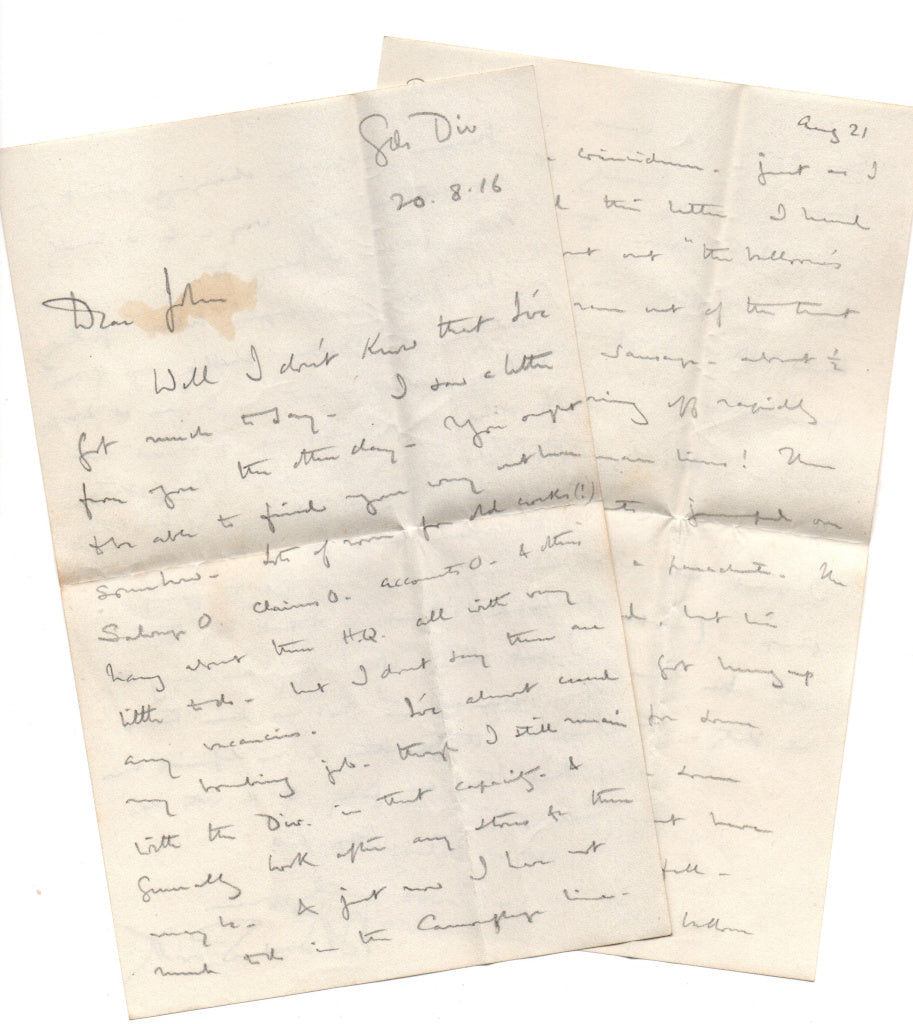 Gds Div
20.8.16
Dear John
Well I don't know that I've
got much to say - I saw a letter
from you the other day - You ought
to be able to find your way out here
somehow - Lots of room for old crocks (!)
Salvage O. Claims O. Accounts O. & others
hang about these H.Q. all with very
little to do - but I don't say there are
any vacancies. I've almost ceased
my bombing job - though I still remain
with the Div. in that capacity - &
generally look after any stores & there
may be - & just now I have not
much to do in the Camouflage line -
Aug 21
coincidence - just as I
this letter I heard
out "the balloon's
ran out of the tent
Sausage - about ½
off rapidly
lines! Then
jumped on
a parachute. The
but his
got hung up
for some
some
have
fall -
balloon